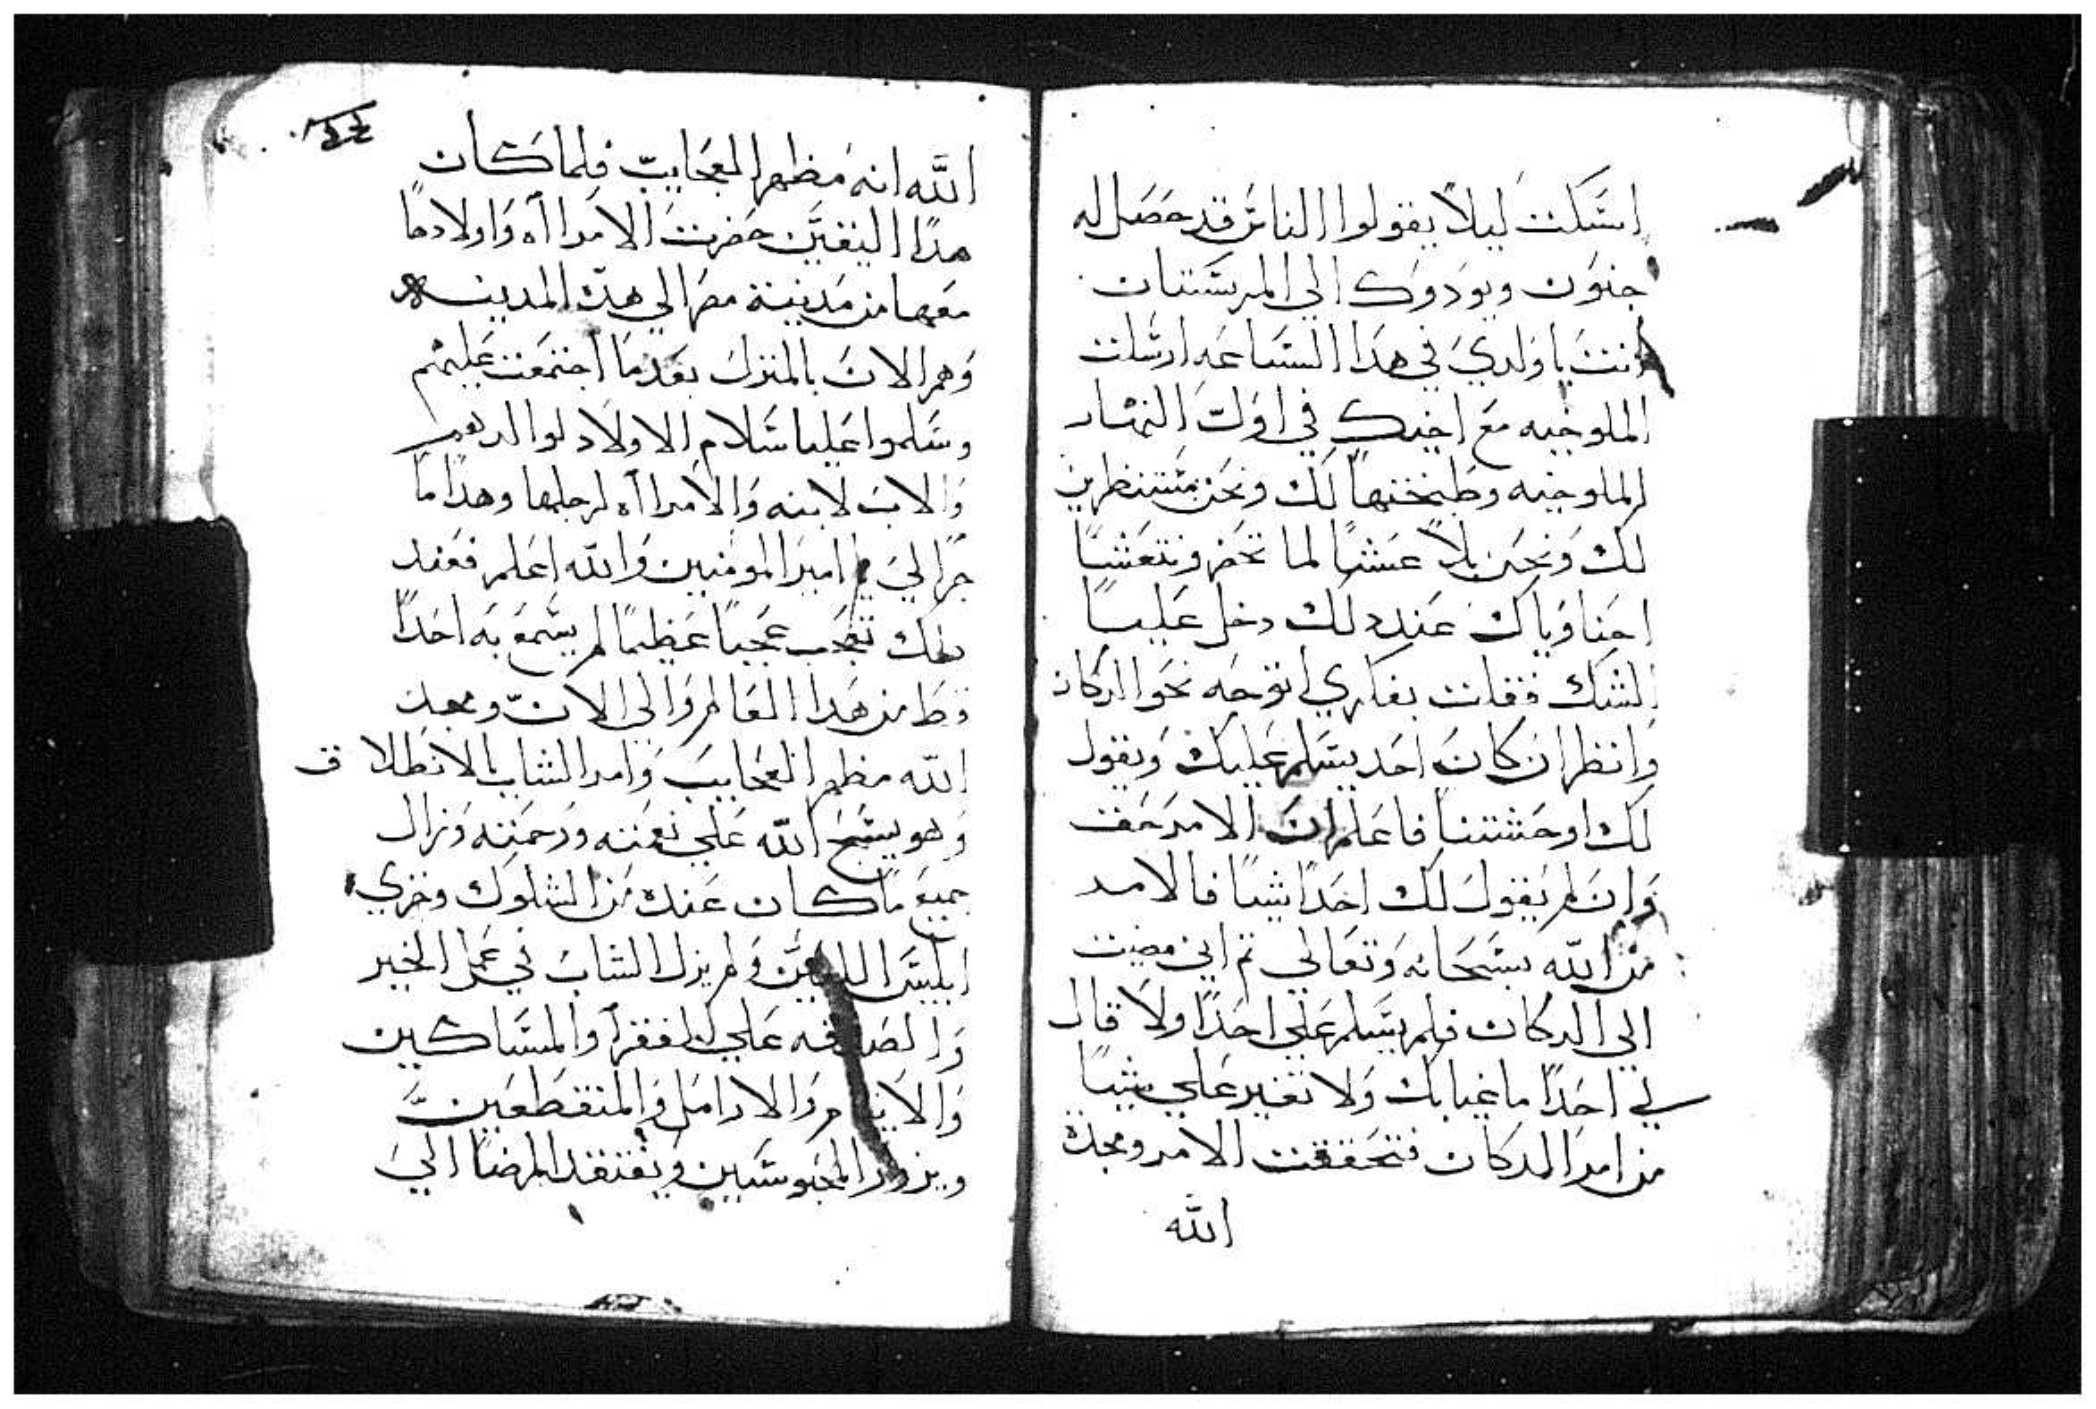 اسكت ليلاً يقولوا الناس قد حصل له
جنون ويودوك الي المرستان
انت يا ولدي في هدا الساعه ارسلت
الملوخيه مع اخيك في اول النهار
الملوخيه وطبختها لك ونحن مستنظرين
لك ونحن بلا عشا لما تحضر ونتعشا
احنا وياك عند دلك دخل عليا
الشك فقلت بفكري اتوجه نحو الدكان
وانظر ان كان احد يسلم عليك ويقول
لك اوحشتنا فاعلم ان الامر حقت
وان لم يقول لك احداً شياً فالامر
من الله سبحانه وتعالي تم اني مضيت
الي الدكان فلم يسلم علي احداً ولا قال
لي احداً ما غيابك ولا تغير علي شياً
من امر الدكان فتحققت الامر ومجدة
الله
الله انه مظهر العجايب فلما كان
هدا اليقين حضرت الامراأه واولادها
معها من مدينة مصر الي هده المدينه
وهم الان بالمنزل بعد ما اجتمعت عليهم
وسلموا عليا سلام الاولاد لوالدهم
والاب لابنه والامراأه لرجلها وهدا ما
جرا لي يا امير المومنين والله اعلم فعند
دلك تعجب عجباً عظيماً لم يسمع به احداً
قط من هدا العالم والي الان ومجد
الله مظهر العجايب وامر الشاب بالانطلاق
وهو يسبح الله علي نعمته ورحمته وزال
جميع ما كان عنده من الشكوك وخزي
ابليس اللعين ولم يزل الشاب في عمل الخير
والصدقه علي الفقرا والمساكين
والايتام والارامل والمنقطعين
ويزور المحبوسين ويفتقد المرضا الي